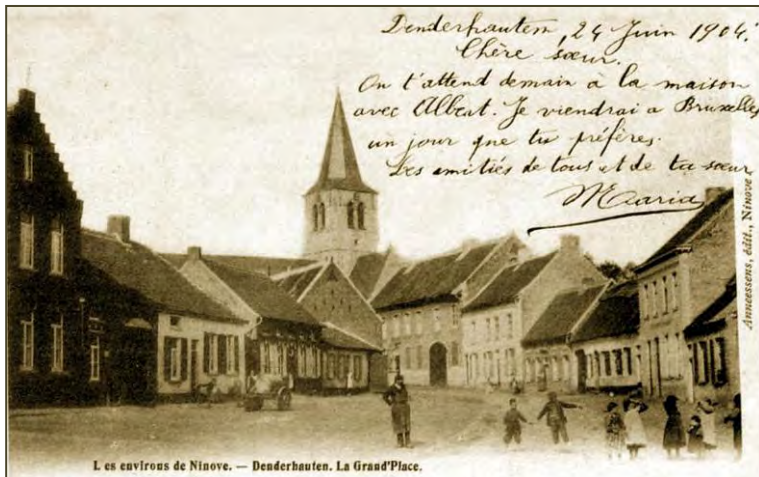 Denderhautem, 24 Juin 1904.
Chère sœur.
On t'attend demain à la maison
avec Albert. Je viendrai a Bruxelles
un jour que tu préfères.
Les amitiés de tous et de ta sœur
Maaria
Anneessens, édit., Ninove
L es environs de Ninove. — Denderhauten. La Grand'Place.